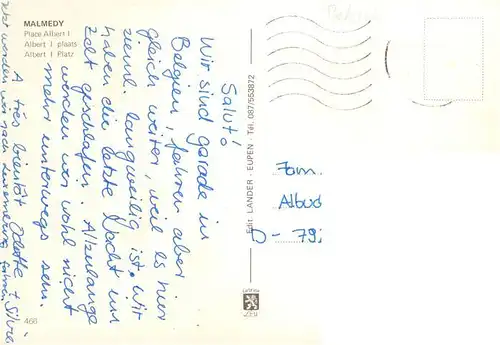 MALMEDY
Place Albert I
Albert I plaats
Albert I Platz
Salut!
Wir sind gerade in
Belgien, fahren aber
gleich weiter, weil es hier
zieml. langweilig ist. Wir
haben die letzte Nacht im
Zelt geschlafen. Allzulange
werden wir wohl nicht
mehr unterwegs sein.
A très bientôt Odette + Silvia
Jetzt werden wir nach Luxemburg fahren
466
Edit. LANDER - EUPEN - Tél. 087/553872
Fam.
D - 79